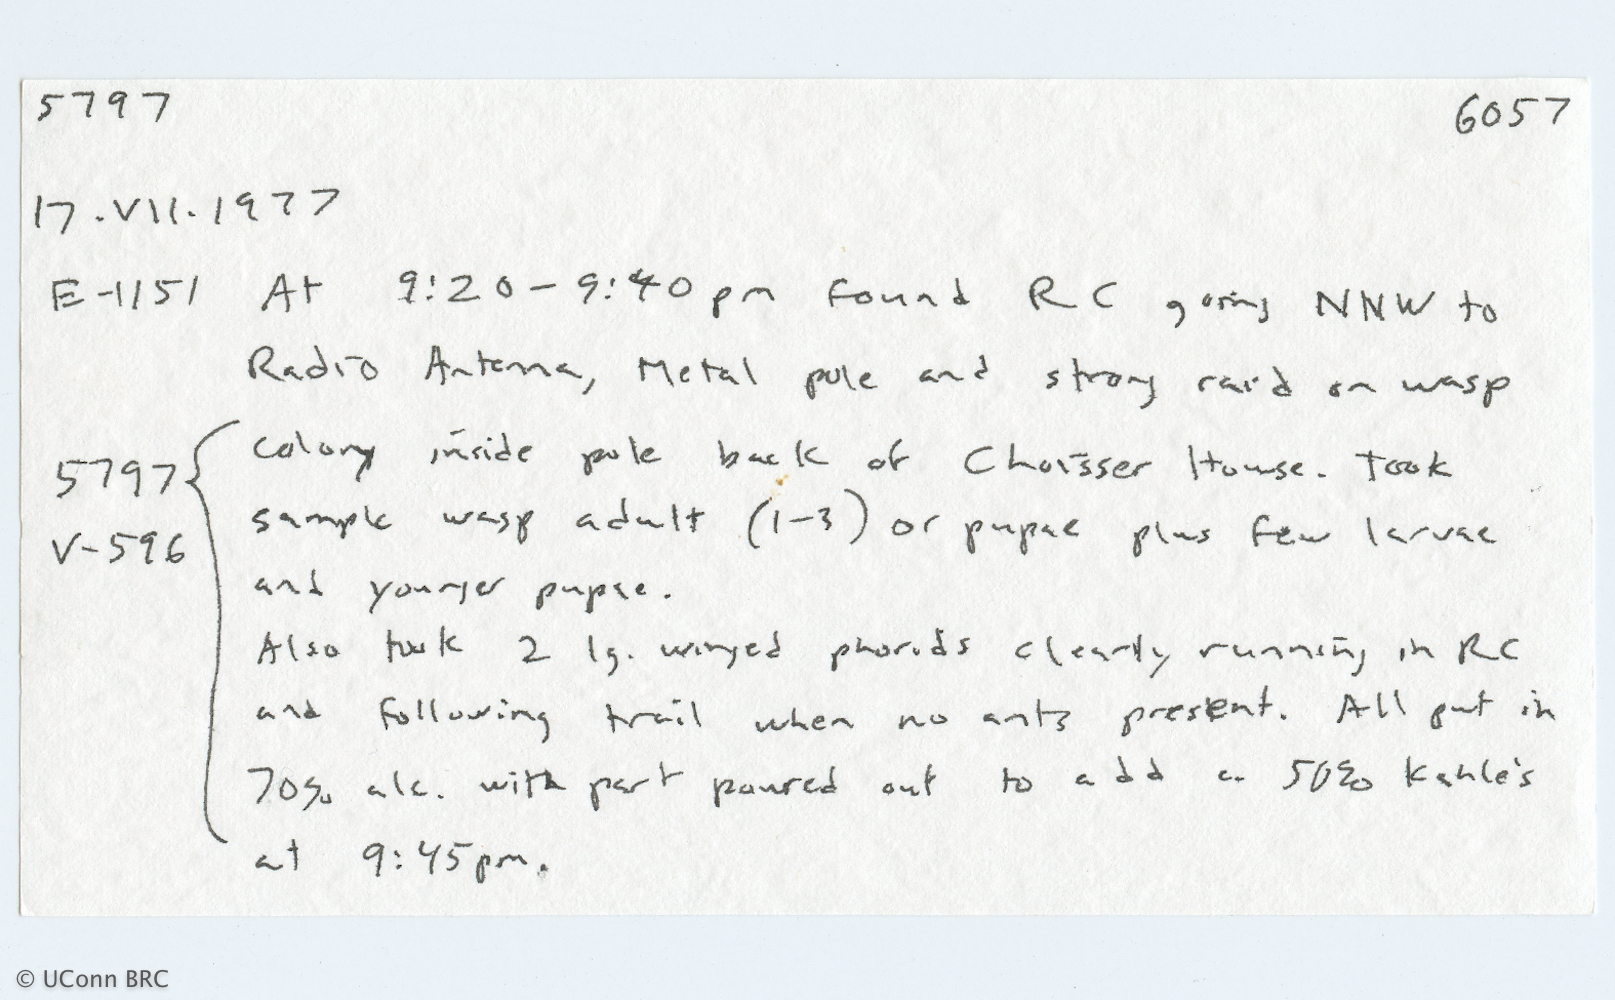 5797 6057
17.VII.1977
E-1151 At 9:20-9:40 pm found RC going NNW to
Radio Antenna, Metal pole and strong raid on wasp
colony inside pole back of Choisser House. Took
5797
sample wasp adult (1-3) or pupae plus few larvae
V-596
and younger pupae.
Also took 2 lg. winged phorids clearly running in RC
and following trail when no ants present. All put in
70% alc. with part poured out to add a 50% Kahle's
at 9:45pm.
© UConn BRC